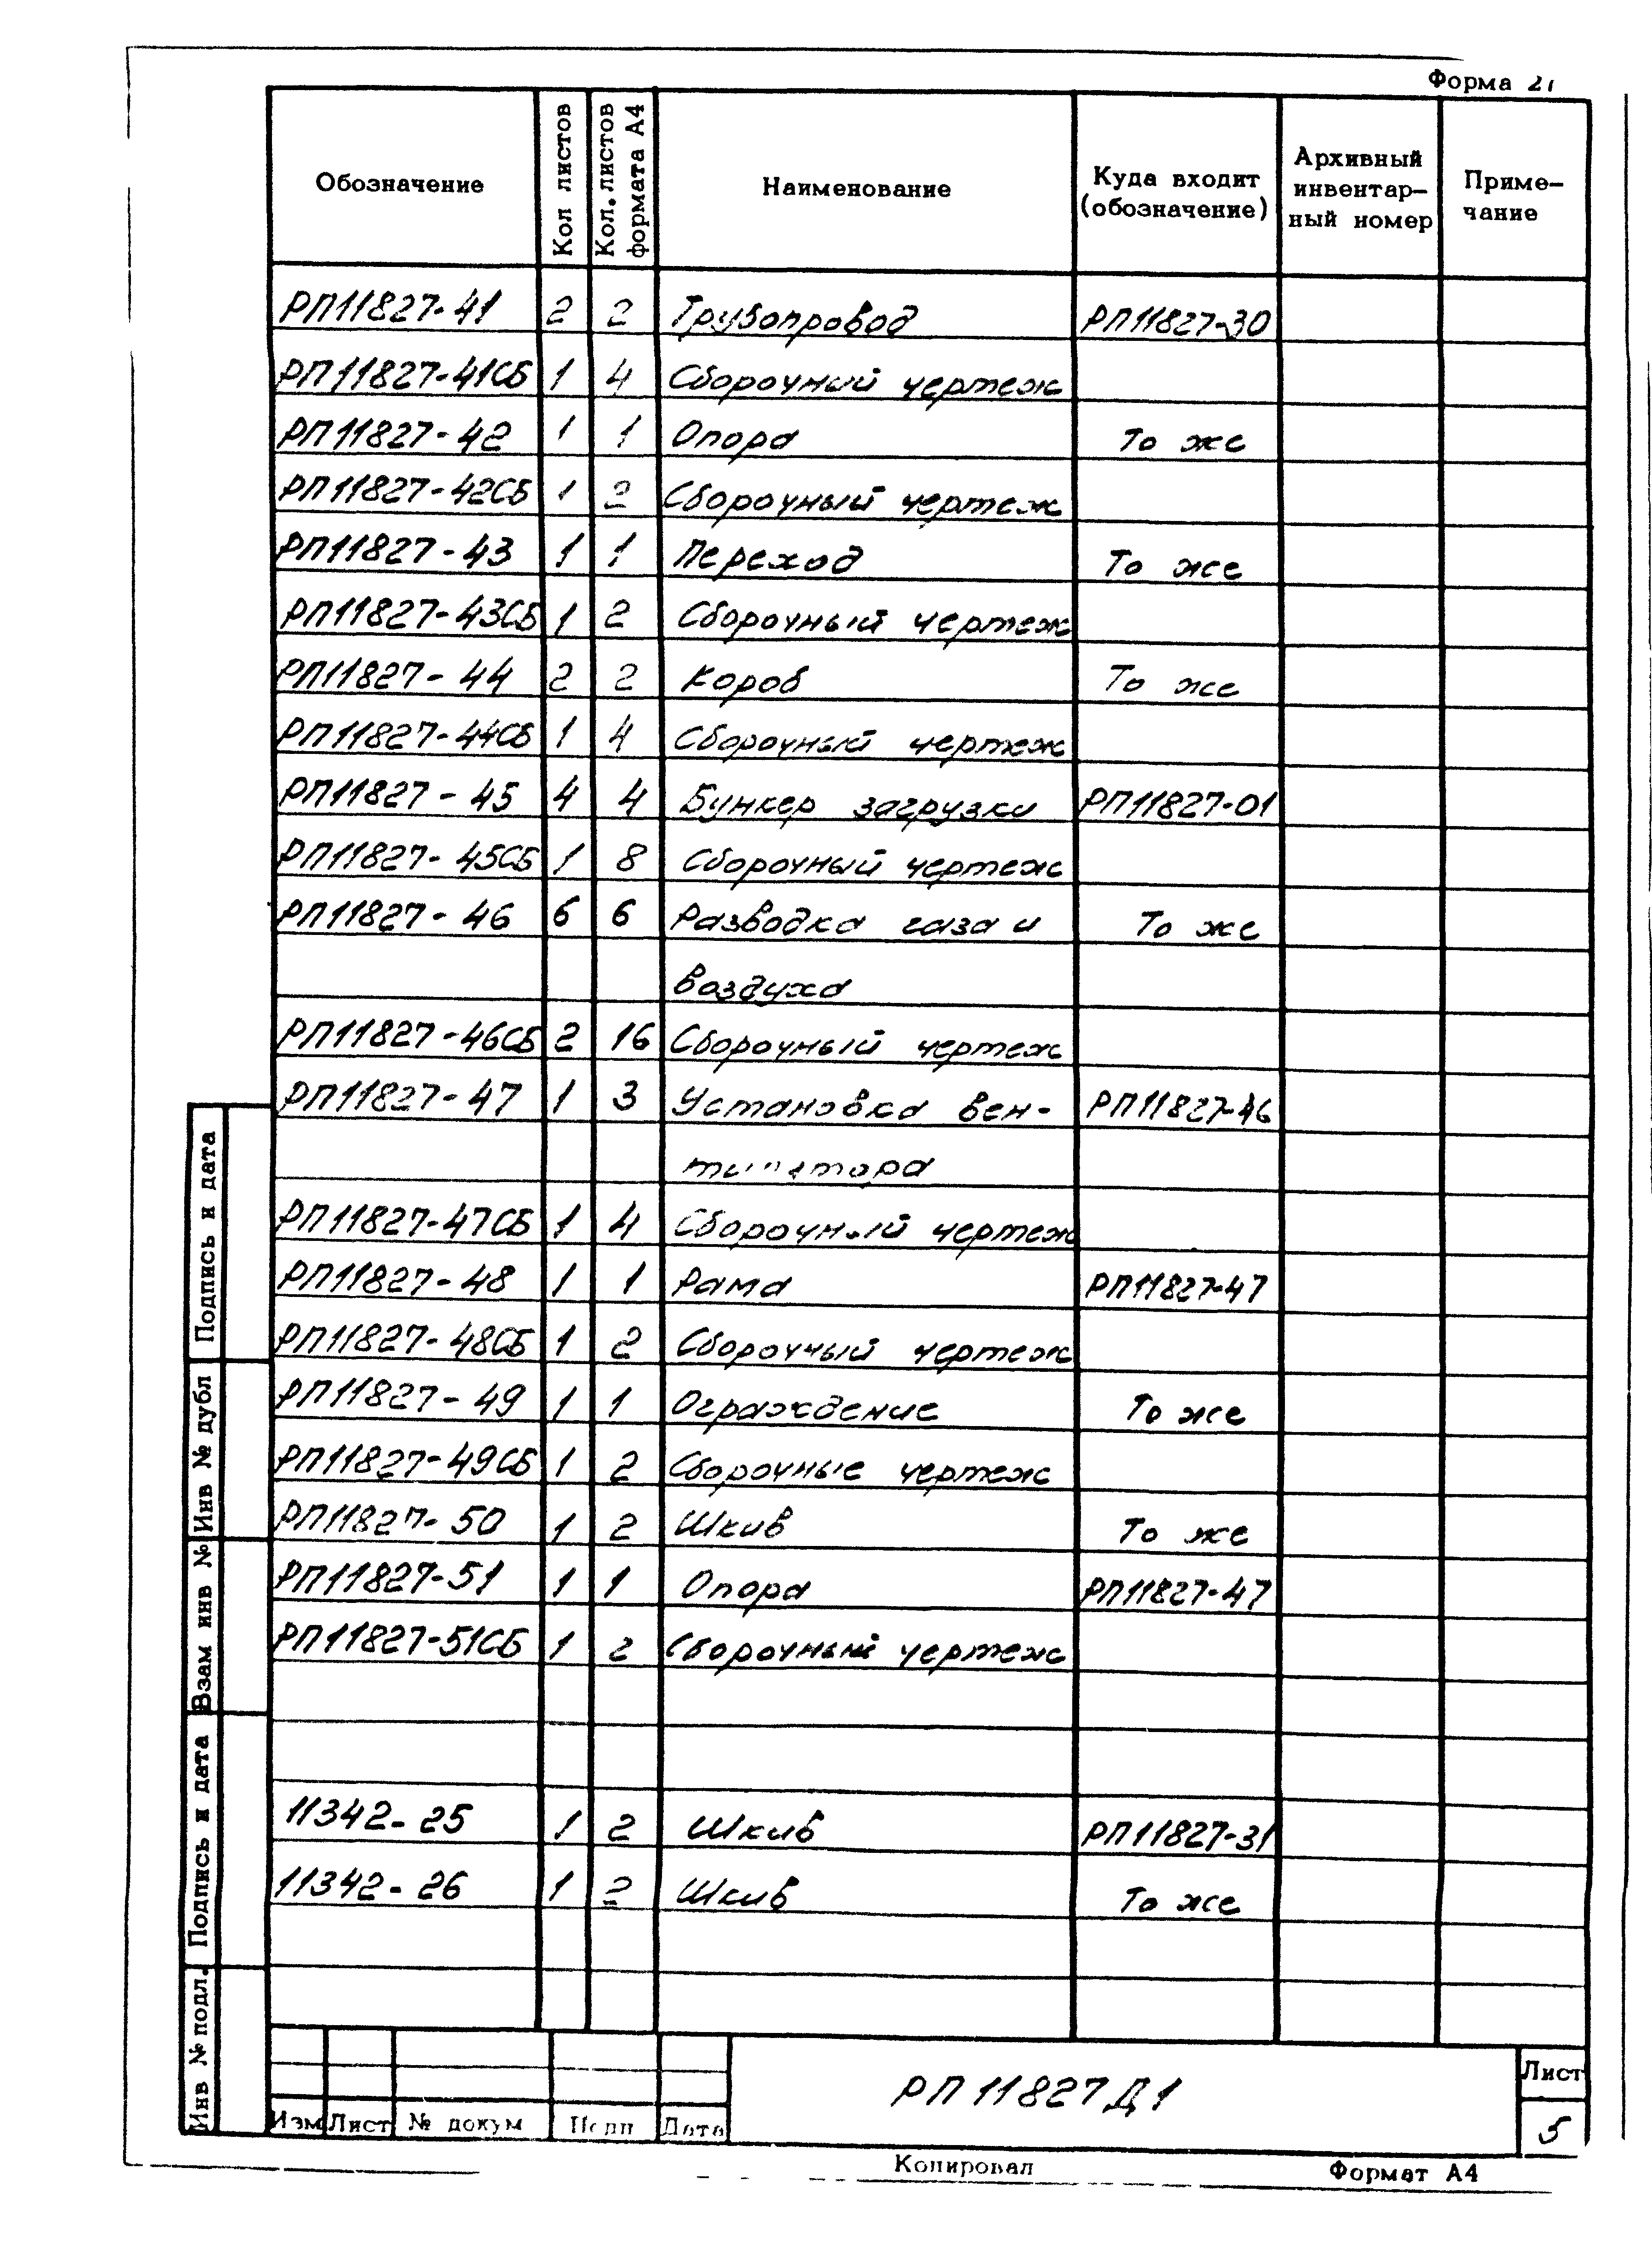 Форма 21
Обозначение
Кол листов
Кол. листов
формата А4
Наименование
Куда входит
(обозначение)
Архивный
инвентар-
ный номер
Приме-
чание
РП11827-41 2 2 Трубопровод РП11827-30
РП11827-41СБ 1 4 Сборочный чертеж
РП11827-42 1 1 Опора То же
РП11827-42СБ 1 2 Сборочный чертеж
РП11827-43 1 1 Переход То же
РП11827-43СБ 1 2 Сборочный чертеж
РП11827-44 2 2 Короб То же
РП11827-44СБ 1 4 Сборочный чертеж
РП11827-45 4 4 Бункер загрузки РП11827-01
РП11827-45СБ 1 8 Сборочный чертеж
РП11827-46 6 6 Разводка газа и То же
воздуха
РП11827-46СБ 2 16 Сборочный чертеж
РП11827-47 1 3 Установка вен- РП11827-46
тилятора
РП11827-47СБ 1 4 Сборочный чертеж
РП11827-48 1 1 Рама РП11827-47
РП11827-48СБ 1 2 Сборочный чертеж
РП11827-49 1 1 Ограждение То же
РП11827-49СБ 1 2 Сборочные чертеж
РП11827-50 1 2 Шкив То же
РП11827-51 1 1 Опора РП11827-47
РП11827-51СБ 1 2 Сборочный чертеж
11342-25 1 2 Шкив РП11827-31
11342-26 1 2 Шкив То же
Подпись и дата
Инв № дубл
Взам инв №
Подпись и дата
Инв № подл.
Изм Лист № докум Подп Дата
РП11827Д1
Лист
5
Копировал
Формат А4